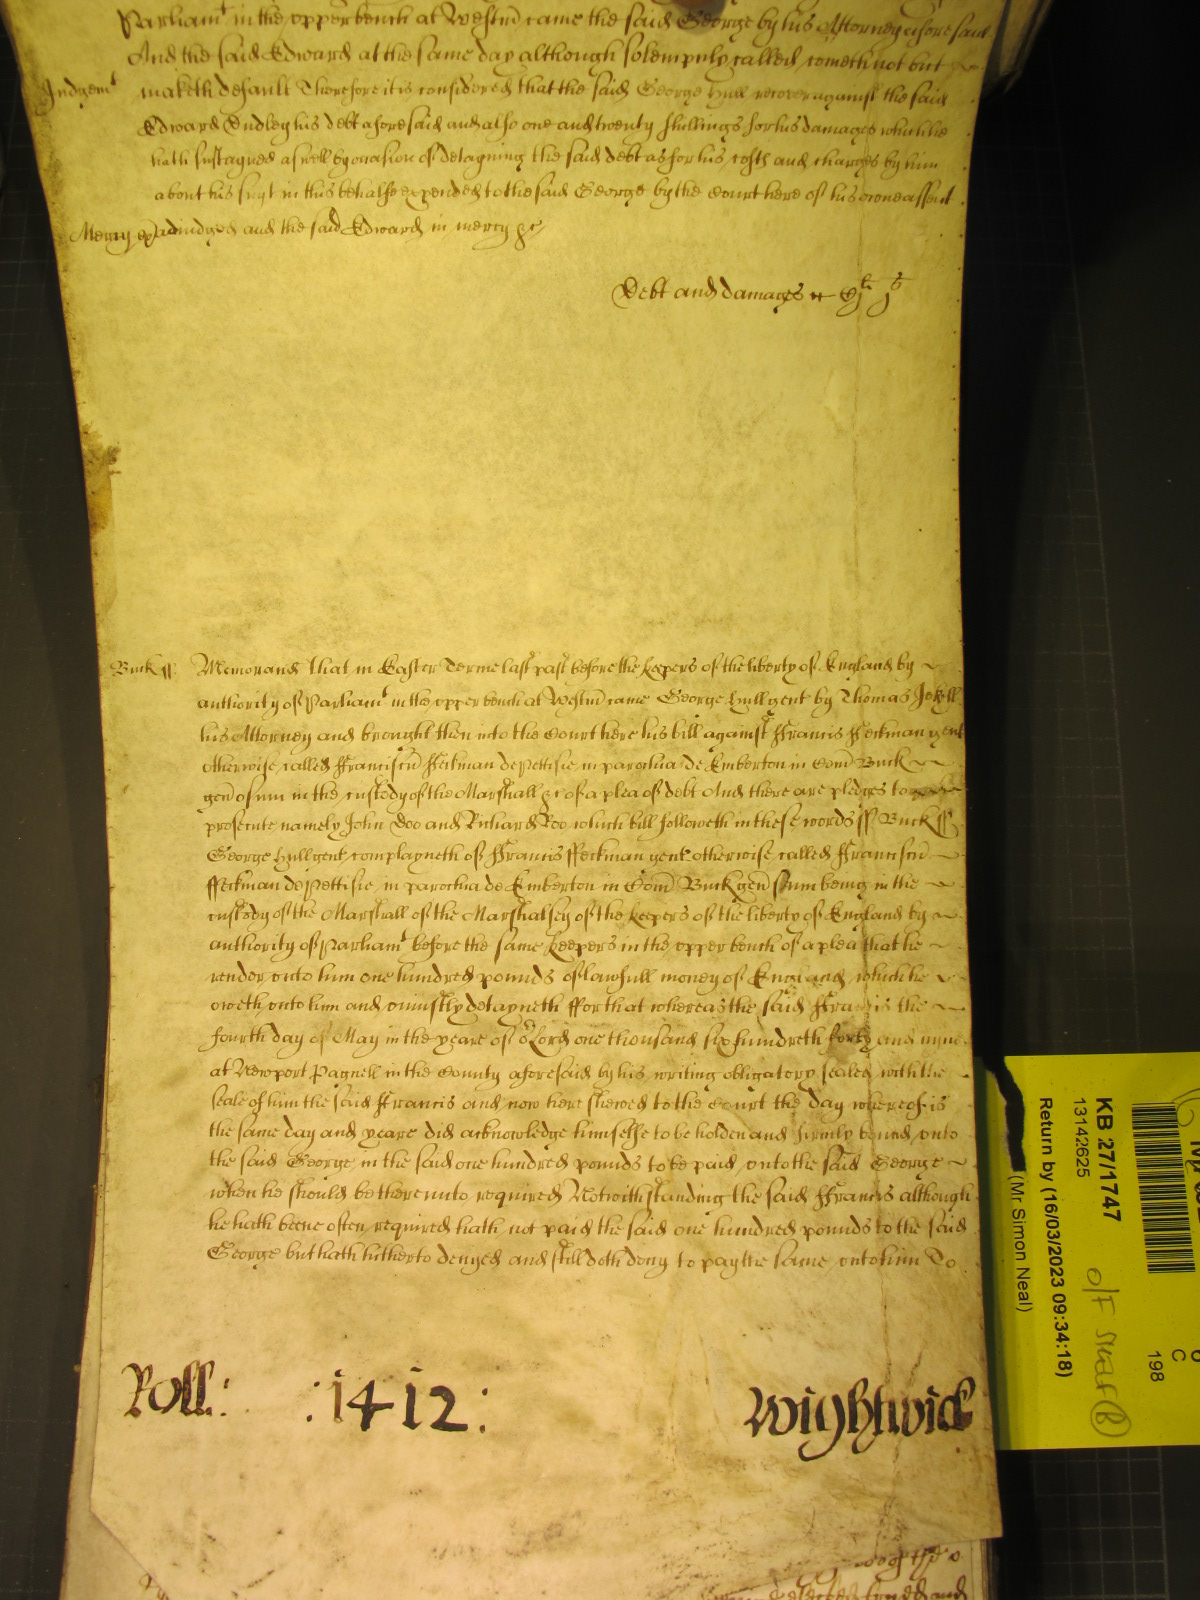 Parliamt in the upper bench at Westm̄ came the said George by his Attorney aforesaid
And the said Edward at the same day although solempnly called cometh not but
Judgemt maketh default Therefore it is considered that the said George Hull recover against the said
Edward Dudley his debt aforesaid and also one and twenty shillings for his damages which he
hath susteyned aswell by occasion of deteyning the said debt as for his costs and charges by him
about his suyt in this behalfe expended to the said George by the Court here of his owne assent
Mercy adiudged and the said Edward in mercy &c
Debt and damages
Buck ss Memorand that in Easter Terme last past before the keepers of the liberty of England by
authority of Parliamt in the upper bench at Westm̄ came George Hull gent by Thomas Jekyll
his Attorney and brought then into the Court here his bill against Francis ffeckman gent
otherwise called ffranciscū ffeckman de Pettisie in parochia de Emberton in Com̄ Buck
gen̄ osum in the custody of the Marshall &c of a plea of debt And there are pledges to
prosecute namely John Doo and Richard Roo which bill followeth in these words ss Buck ss
George Hull gent complayneth of ffrancis ffeckman gent otherwise called ffranciscū
ffeckman de Pettisie in parochia de Emberton in Com̄ Buck gen̄ osum being in the
custody of the Marshall of the Marshalsey of the keepers of the liberty of England by
authority of Parliamt before the same keepers in the upper bench of a plea that he
render unto him one hundred pounds of lawfull money of England which he
oweth unto him and uniustly detayneth ffor that whereas the said ffrancis the
fourth day of May in the yeare of or Lord one thousand six hundreth forty and nyne
at Newport Pagnell in the County aforesaid by his writing obligatory sealed with the
seale of him the said ffrancis and now here shewed to the Court the day whereof is
the same day and yeare did acknowledge himselfe to be holden and firmly bound unto
the said George in the said one hundred pounds to be paid unto the said George
when he should be thereunto required Notwithstanding the said ffrancis although
he hath beene often required hath not paid the said one hundred pounds to the said
George but hath hitherto denyed and still doth deny to pay the same unto him To
Roll: :1412: Wightwick
KB 27/1747
13142625
Return by (16/03/2023 09:34:18)
(Mr Simon Neal)
C
198